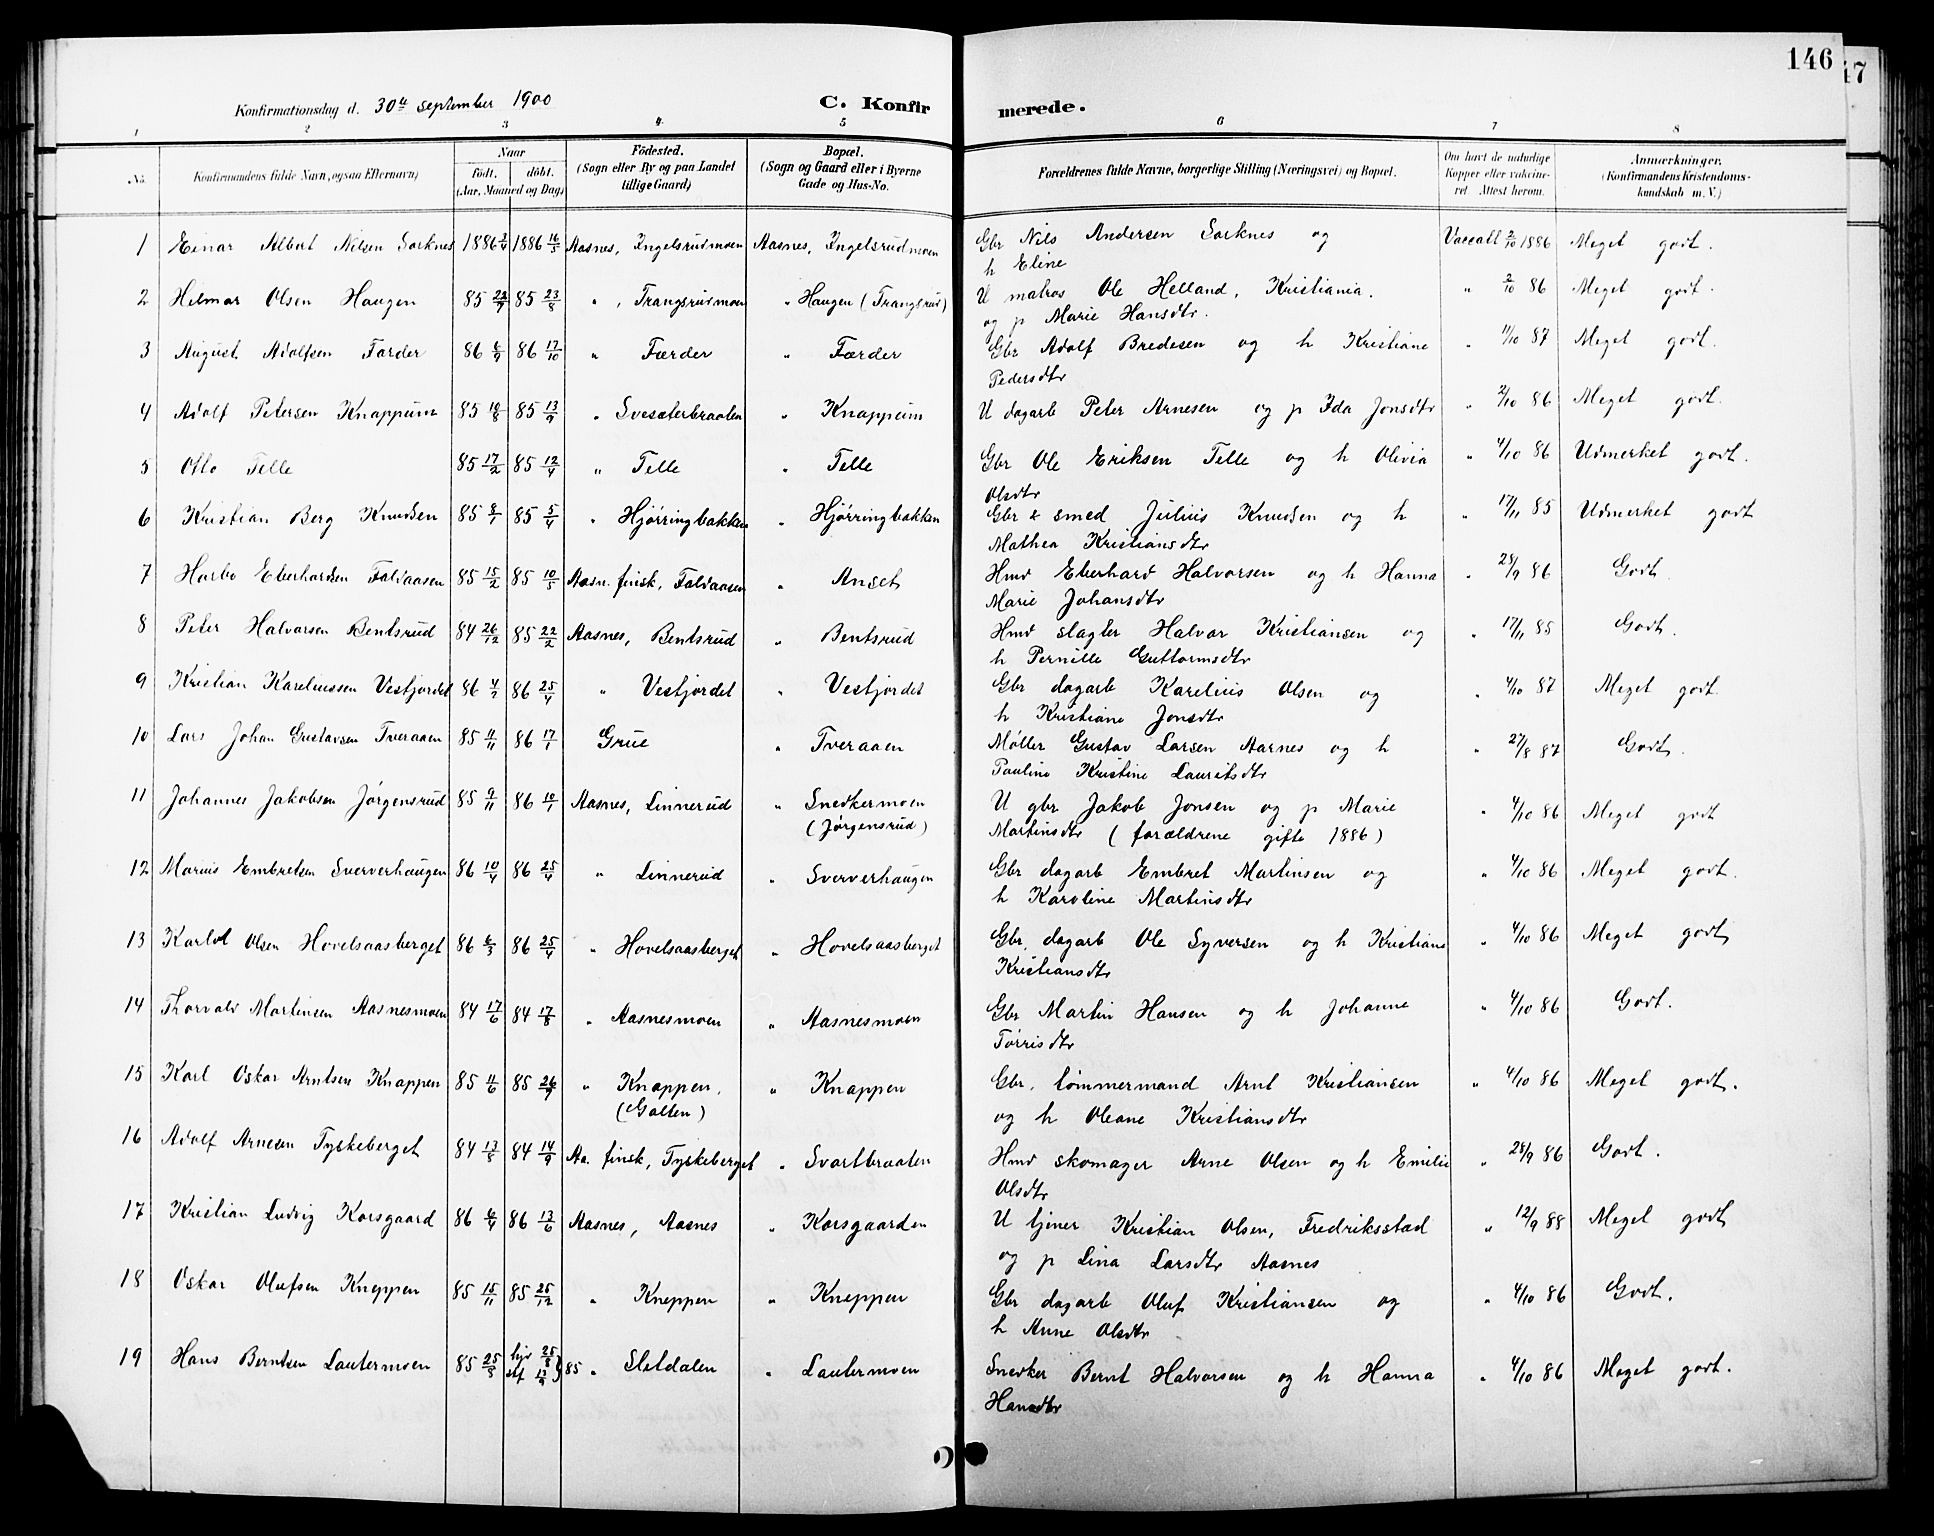 146
47
Konfirmationsdag d. 30te september 1900 C. Konfirmerede.
1 2 3 4 5 6 7 8
No. Konfirmandens fulde Navn, ogsaa Efternavn) Naar födt. döbt. (Aar, Maaned og Dag) Födested. (Sogn eller By og paa Landet tillige Gaard) Bopæl. (Sogn og Gaard eller i Byerne Gade og Hus-No. Forældrenes fulde Navne, borgerlige Stilling (Næringsvei) og Bopæl. Om havt de naturlige Kopper eller vakcineret Attest herom. Anmærkninger. (Konfirmandens Kristendomskundskab m. V.)
1 Einar Albert Nilsen Sorknes 1886 1886 16/5 Aasnes, Ingelsrudmoen Aasnes, Ingelsrudmoen Gbr Nils Andersen Sorknes og Vaccatt 2/10 1886 Meget godt.
h Eline
2 Hilmar Olsen Haugen 85 22/7 85 23/8 " , Trangsrudmoen " Haugen (Trangsrud) U matros Ole Helland, Kristiania. " 2/10 86 Meget godt.
og p Marie Hansdtr.
3 August Adolfsen Færder 86 6/9 86 17/10 " Færder " Færder Gbr Adolf Bredesen og h Kristiane " 11/10 87 Meget godt.
Pedersdtr
4 Adolf Petersen Knappum 85 18/8 85 13/9 " Svesæterbraaten " Knappum U dagarb Peter Arnesen og p Ida Jonsdtr " 2/10 86 Meget godt.
5 Otto Telle 85 17/2 85 12/4 " Telle " Telle Gbr Ole Eriksen Telle og h Olivia " 4/10 86 Udmerket godt.
Olsdtr
6 Kristian Berg Knudsen 85 8/1 85 5/4 " Hjørringbakken " Hjørringbakken Gbr & smed Julius Knudsen og h " 17/11 85 Udmerket godt
Mathea Kristiansdtr
7 Harbo Eberhardsen Faldaasen 85 15/2 85 10/5 Aasn. finsk, Faldaasen " Anset Hmd Eberhard Halvorsen og h Hanna " 28/9 86 Godt
Marie Johansdtr
8 Peter Halvorsen Bentsrud 84 26/12 85 22/2 Aasnes, Bentsrud " Bentsrud Hmd slagter Halvor Kristiansen og " 17/11 85 Godt.
h Pernille Guttormsdtr
9 Kristian Kareliussen Vestjordet 86 86 25/4 " Vestjordet " Vestjordet Gbr dagarb Karelius Olsen og " 4/10 87 Meget godt.
h Kristiane Jonsdtr
10 Lars Johan Gustavsen Tveraaen 85 11/11 86 17/1 Grue " Tveraaen Møller Gustav Larsen Aarnes og h " 27/8 87 Godt.
Pauline Kristine Lauritsdtr
11 Johannes Jakobsen Jørgensrud 85 9/11 86 10/1 Aasnes, Linnerud " Snedkermoen U gbr Jakob Jonsen og p Marie " 4/10 86 Meget godt
(Jørgensrud) Martinsdtr (forældrene gifte 1886)
12 Marius Embretsen Sververhaugen 86 10/4 86 25/4 " Linnerud " Sververhaugen Gbr dagarb Embret Martinsen og " 4/10 86 Meget godt.
h Karoline Martinsdtr
13 Olsen Hovelsaasberget 86 6/3 86 25/4 " Hovelsaasberget " Hovelsaasberget Gbr. dagarb Ole Syversen og h Kristiane " 4/10 86 Meget godt
Kristiansdtr
14 Thorvald Martinsen Aasnesmoen 84 17/6 84 17/8 " Aasnesmoen " Aasnesmoen Gbr Martin Hansen og h Johanne " 4/10 86 Godt.
Tørrisdtr
15 Karl Oskar Arntsen Knappen 85 11/6 85 26/7 " Knappen, " Knappen Gbr. tømmermand Arnt Kristiansen " 4/10 86 Meget godt.
(Galten) og h Oleane Kristiansdtr
16 Adolf Arnesen Tyskeberget 84 13/8 84 14/9 Aa. finsk, Tyskeberget " Svartbraaten Hmd skomager Arne Olsen og h Emilie " 28/9 86 Godt.
Olsdtr
17 Kristian Ludvig Korsgaard 86 6/4 86 13/6 Aasnes, Aasnes " Korsgaarden U tjener Kristian Olsen, Fredriksstad " 12/9 88 Meget godt
og p Lina Larsdtr Aasnes
18 Oskar Olufsen Kneppen 85 15/11 85 25/12 " Kneppen " Kneppen Gbr dagarb Oluf Kristiansen og " 4/10 86 Godt.
h Anne Olsdtr
19 Hans Berntsen Lautermoen 85 25/8 hjd 25/8 stf 13/9 } 85 " Sletdalen " Lautermoen Snedker Bernt Halvorsen og h Hanna " 4/10 86 Meget godt.
Hansdtr